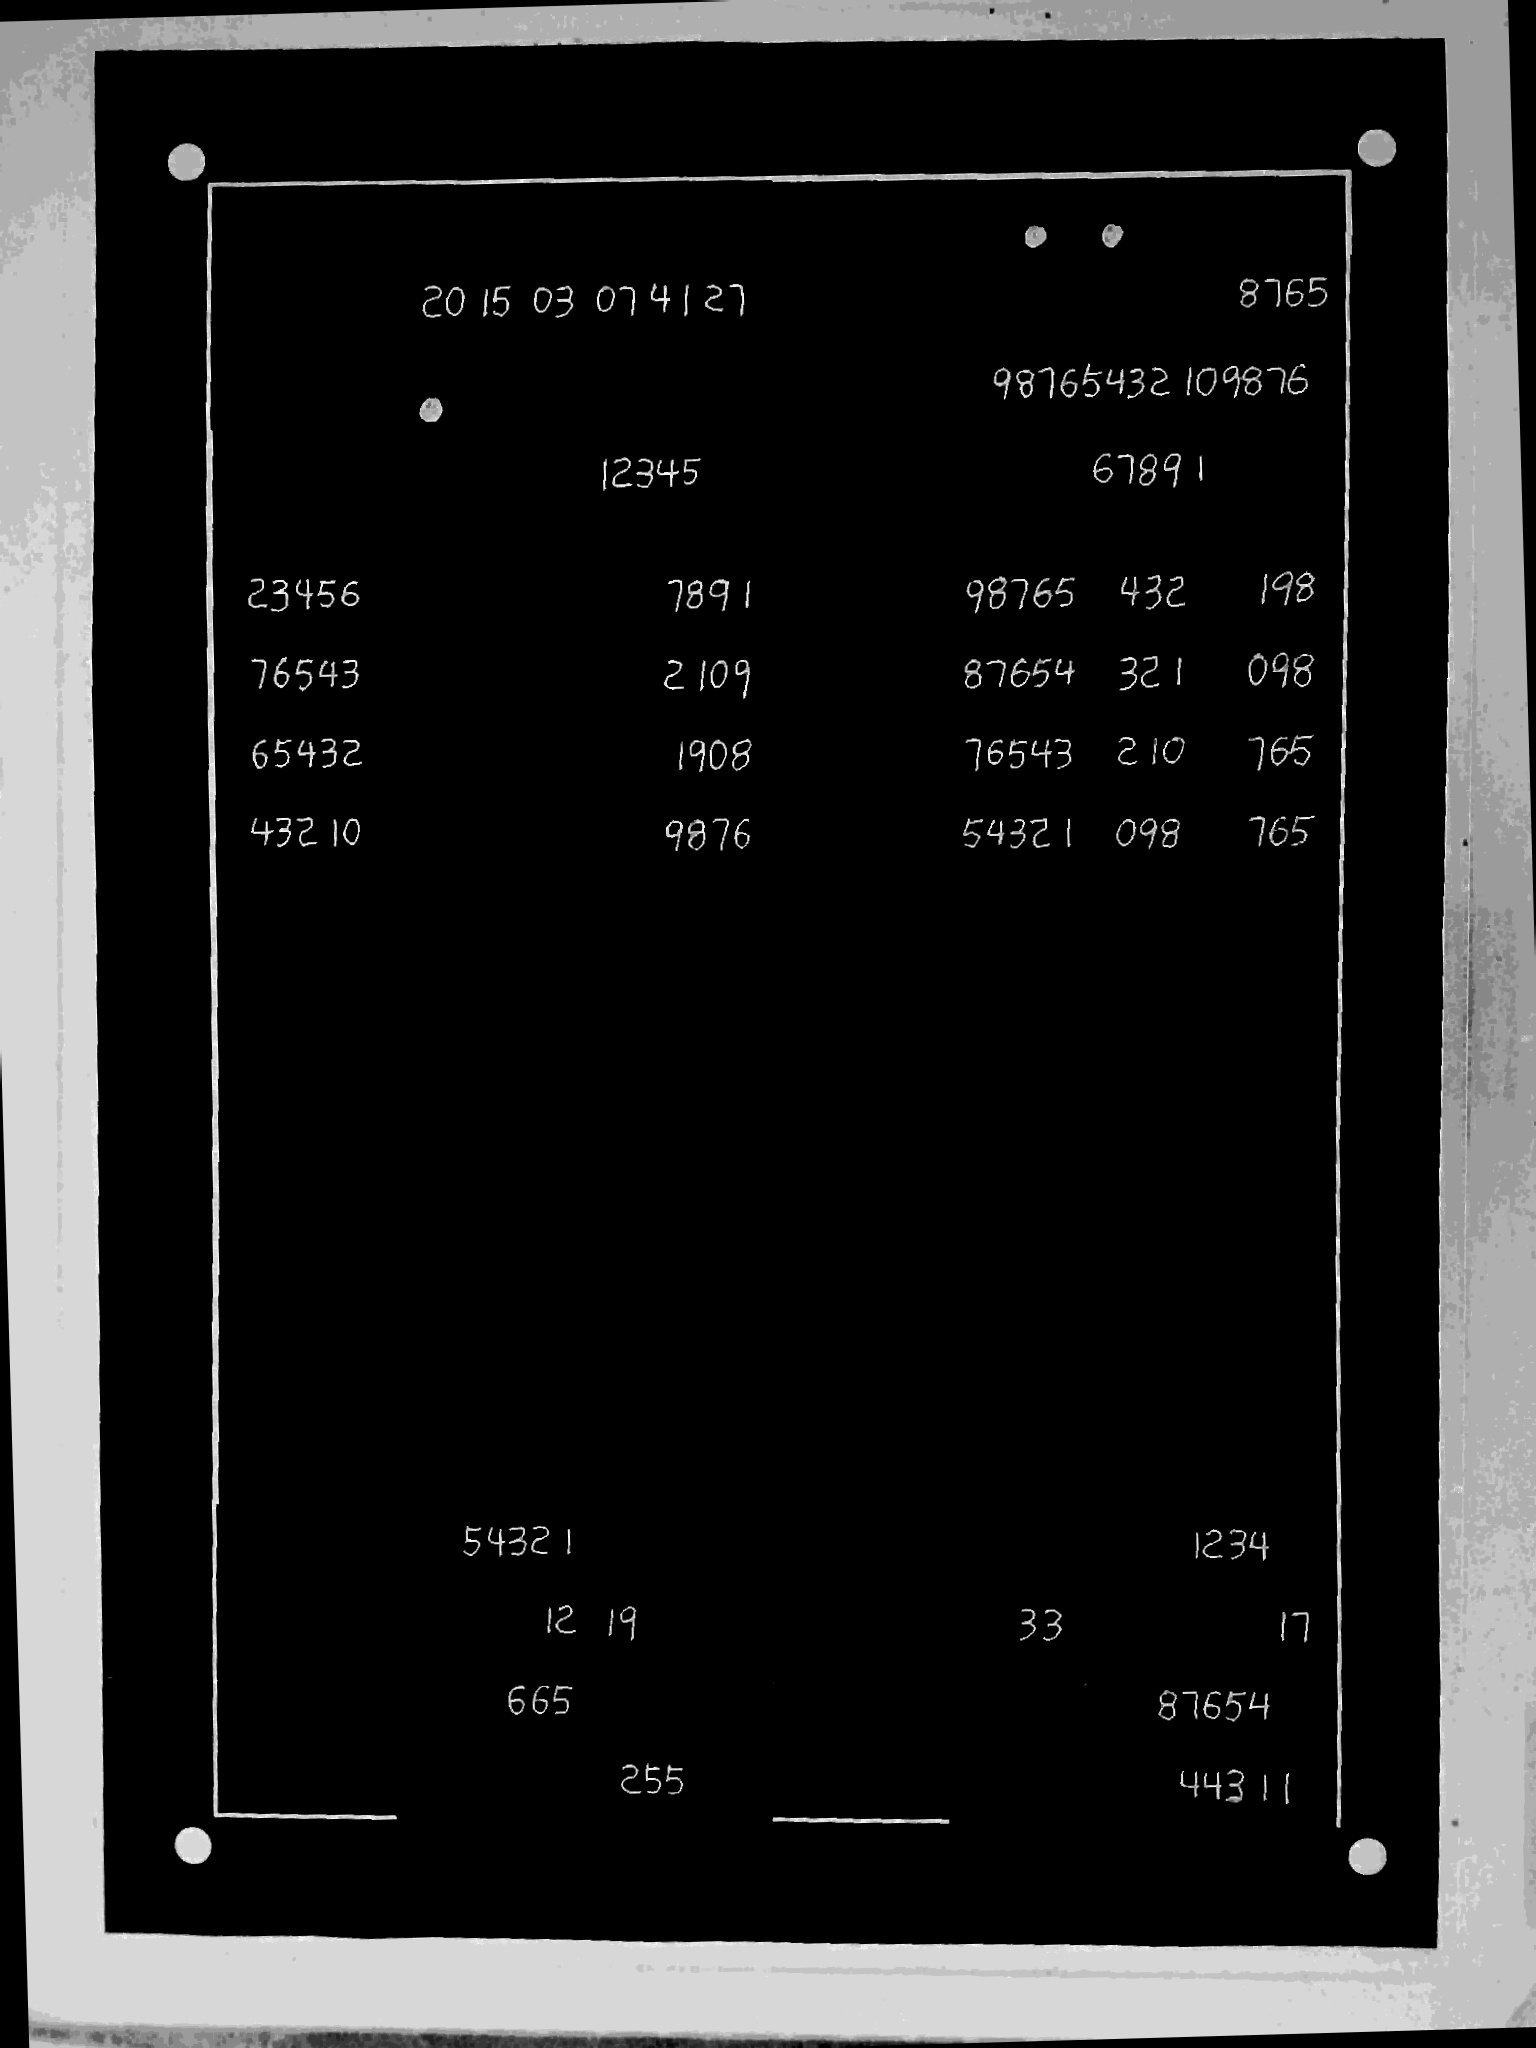 20 15 03 07 41 27 8765
98765432109876
12345 67891
23456 7891 98765 432 198
76543 2109 87654 321 098
65432 1908 76543 210 765
43210 9876 54321 098 765
54321 1234
12 19 33 17
665 87654
255 44311